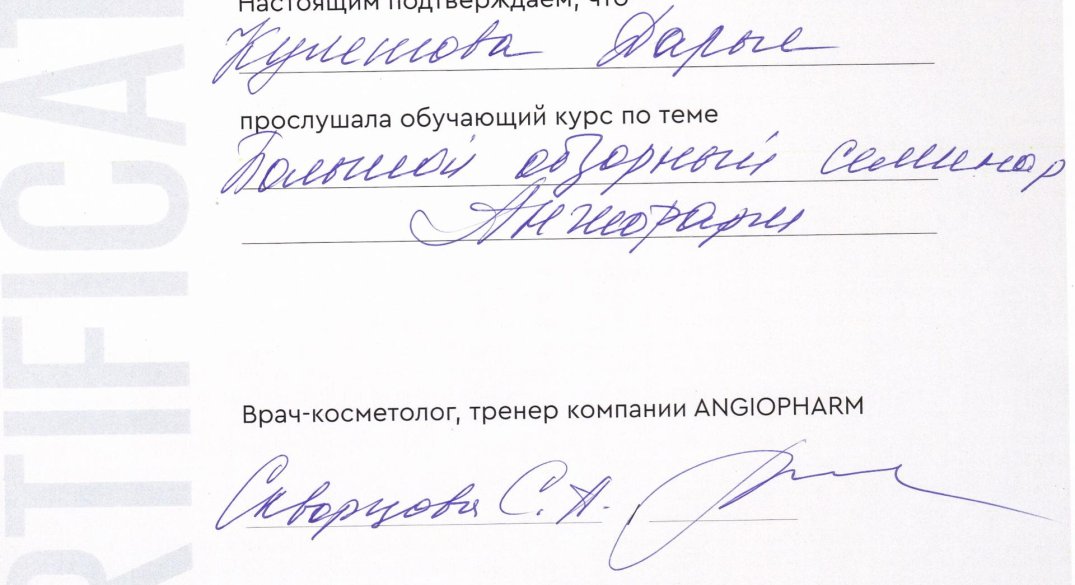 CERTIFICAT
Настоящим подтверждаем, что
Кулешова Дарья
прослушала обучающий курс по теме
Большой обзорный семинар
Анжиофарм
Врач-косметолог, тренер компании ANGIOPHARM
Скворцова С.А.